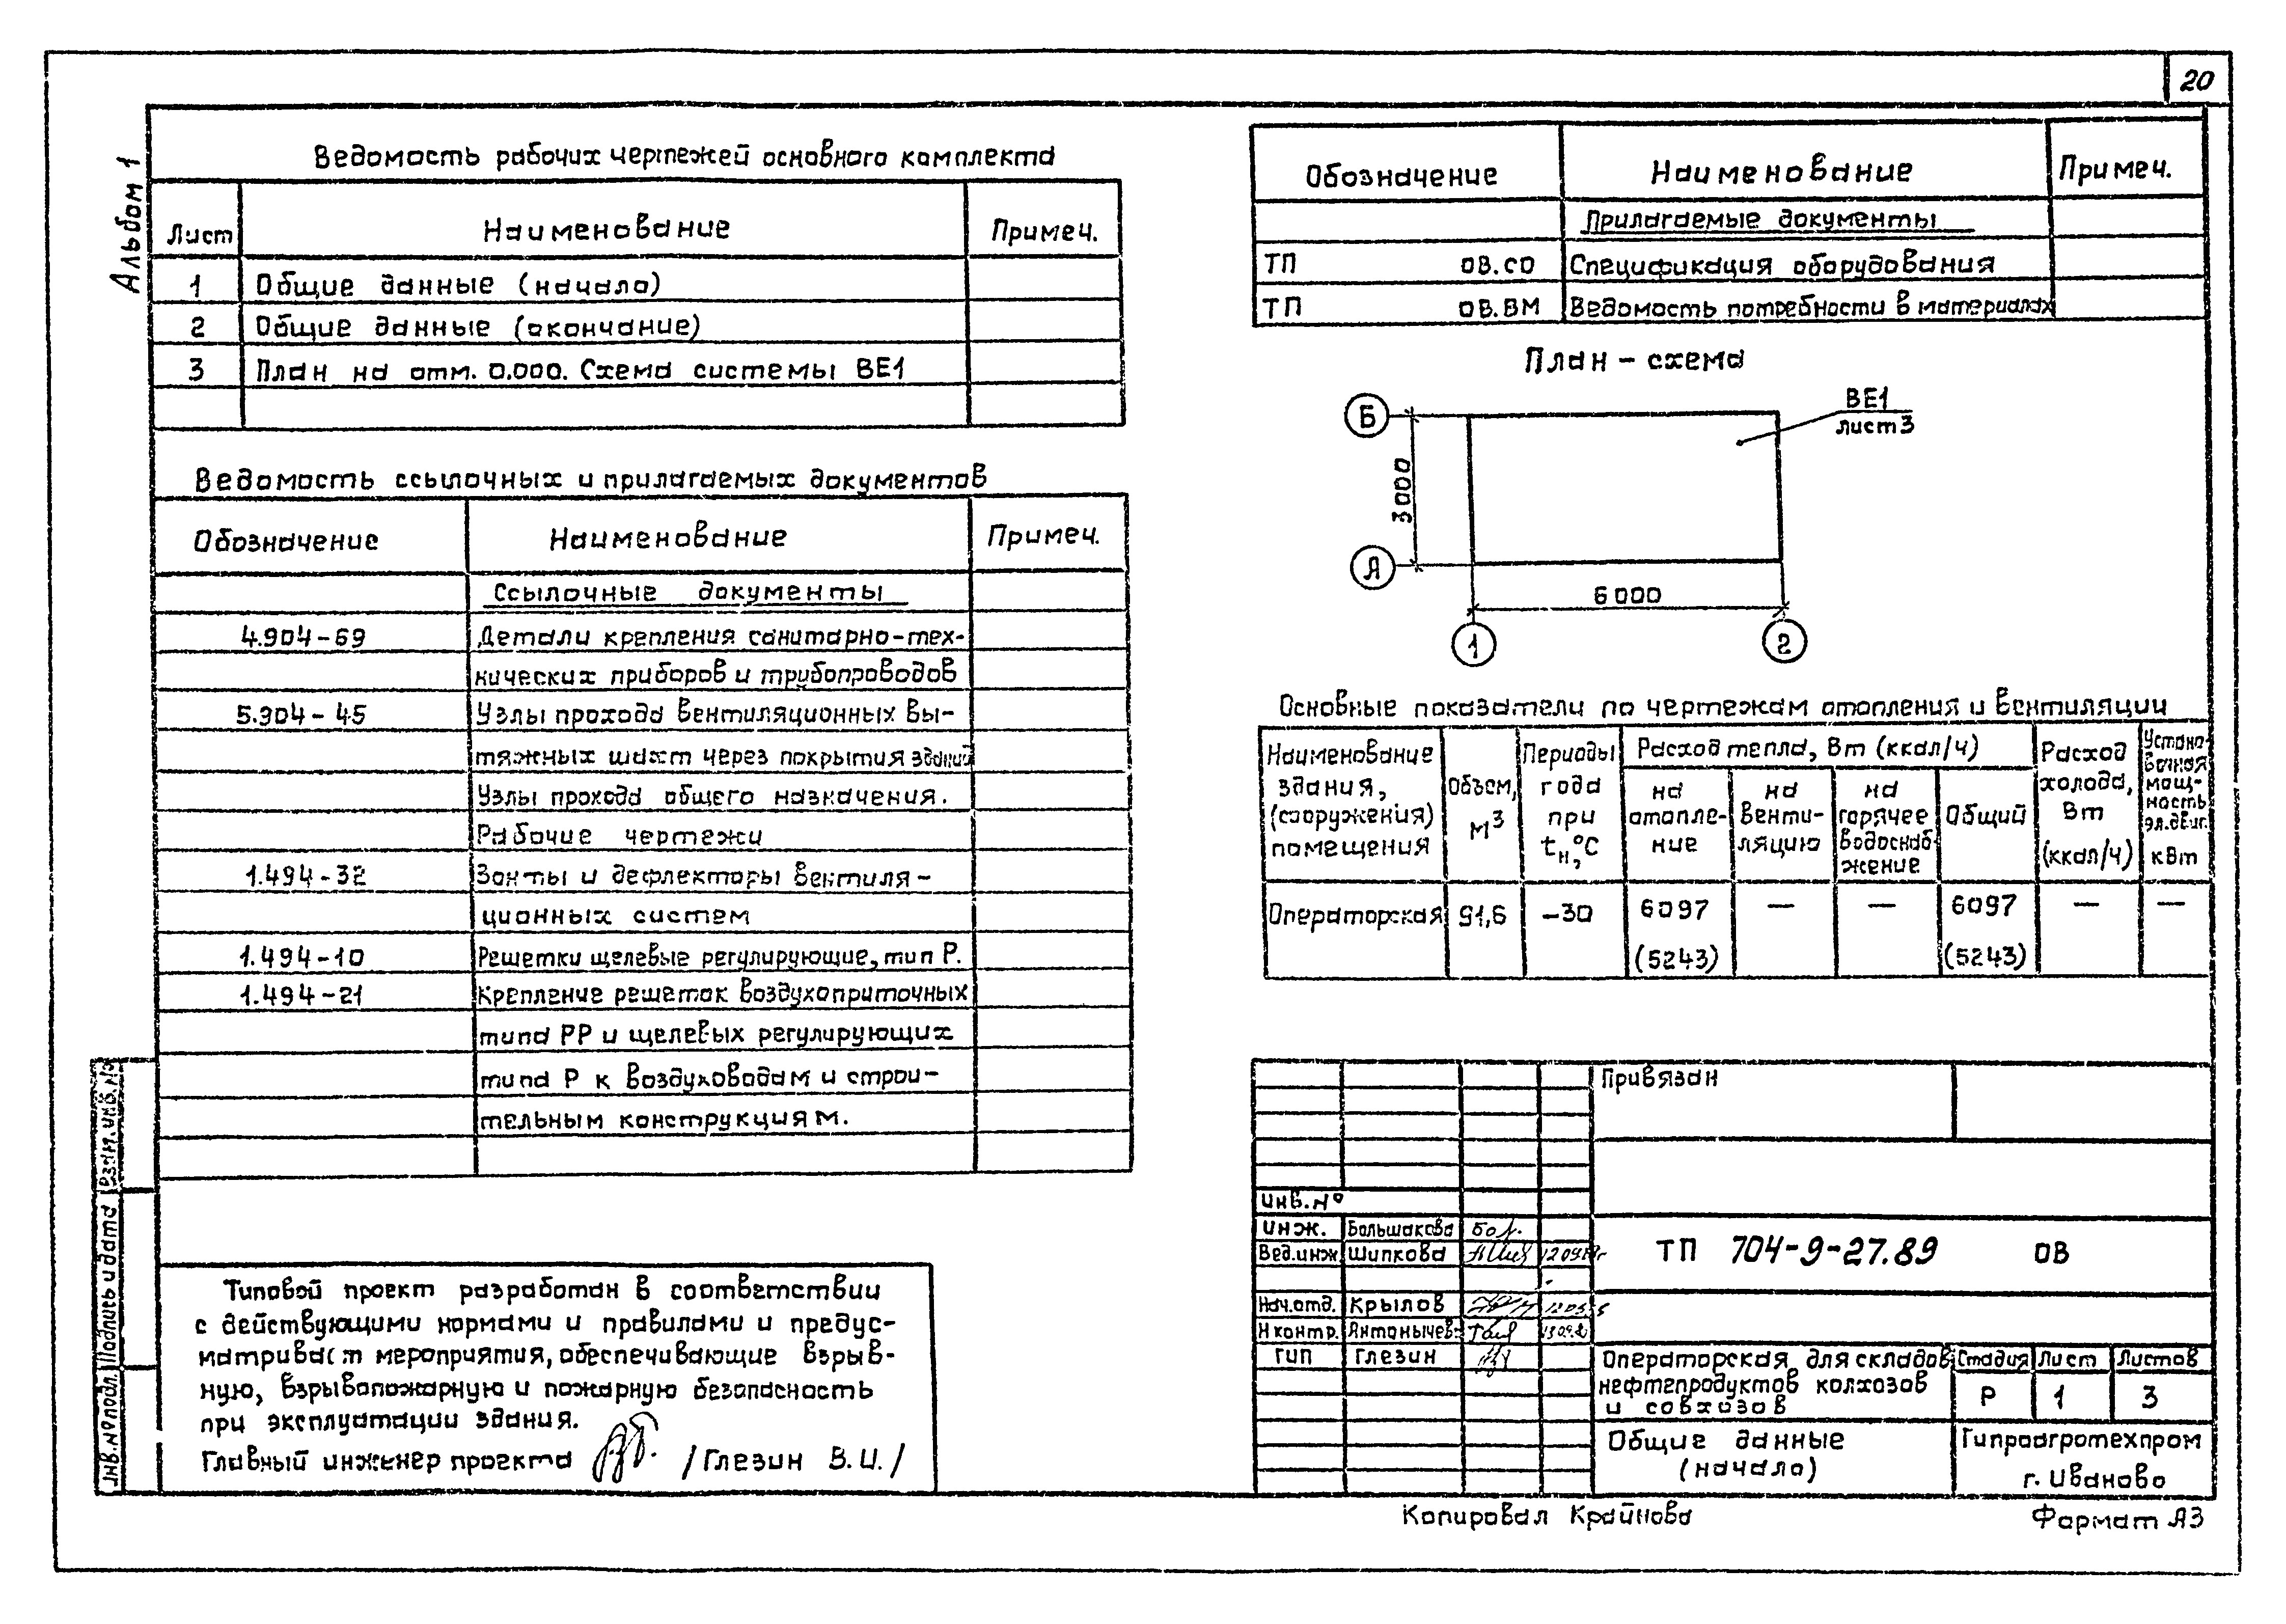 20
Альбом 1
Ведомость рабочих чертежей основного комплекта
Лист Наименование Примеч.
1 Общие данные (начало)
2 Общие данные (окончание)
3 План на отм. 0.000. Схема системы ВЕ1
Ведомость ссылочных и прилагаемых документов
Обозначение Наименование Примеч.
Ссылочные документы
4.904-69 Детали крепления санитарно-тех-
нических приборов и трубопроводов
5.904-45 Узлы прохода вентиляционных вы-
тяжных шахт через покрытия зданий
Узлы прохода общего назначения.
Рабочие чертежи
1.494-32 Зонты и дефлекторы вентиля-
ционных систем
1.494-10 Решетки щелевые регулирующие, тип Р.
1.494-21 Крепление решеток воздухоприточных
типа РР и щелевых регулирующих
типа Р к воздуховодам и строи-
тельным конструкциям.
Типовой проект разработан в соответствии
с действующими нормами и правилами и предус-
матривает мероприятия, обеспечивающие взрыв-
ную, взрывопожарную и пожарную безопасность
при эксплуатации здания.
Главный инженер проекта /Глезин В.И./
Взам. инв. №
Подпись и дата
Инв. № подл.
Обозначение Наименование Примеч.
Прилагаемые документы
ТП ОВ.СО Спецификация оборудования
ТП ОВ.ВМ Ведомость потребности в материалах
План-схема
Б
ВЕ1
лист 3
3000
А
6000
1 2
Основные показатели по чертежам отопления и вентиляции
Наименование здания, (сооружения) помещения
Объем, м³
Периоды года при tн, °С
Расход тепла, Вт (ккал/ч)
на отопле-ние
на венти-ляцию
на горячее водоснаб-жение
Общий
Расход холода, Вт (ккал/ч)
Устано-вочная мощ-ность эл.двиг. кВт
Операторская 91,6 -30 6097 — — 6097 — —
(5243) (5243)
Привязан
Инв. №
Инж. Большакова
Вед.инж Шипкова
Нач.отд. Крылов
Н контр. Антонычев
ГИП Глезин
ТП 704-9-27.89 ОВ
Операторская для складов
нефтепродуктов колхозов
и совхозов
Стадия Лист Листов
Р 1 3
Общие данные
(начало)
Гипроагротехпром
г. Иваново
Копировал Крайнова
Формат А3